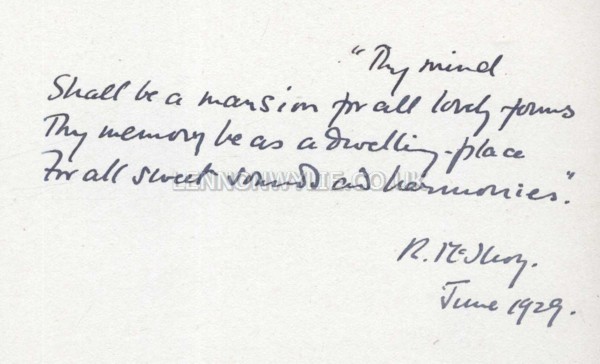 "Thy mind
Shall be a mansion for all lovely forms
Thy memory be as a dwelling-place
For all sweet sounds and harmonies."
LENNONWYLIE.CO.UK
R.
June 1929.